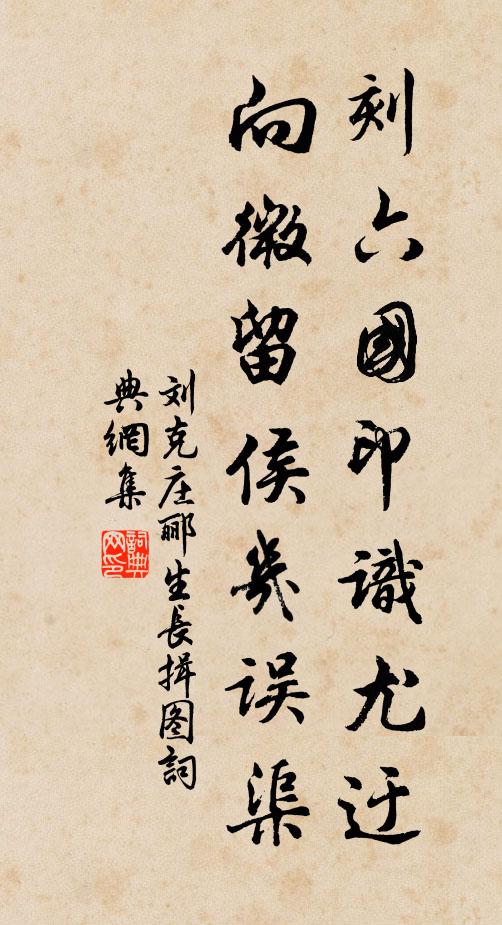 刻六國印識尤迂
向微留侯幾误渠
刘克庄郦生長揖图詞
典網集
詞典网印